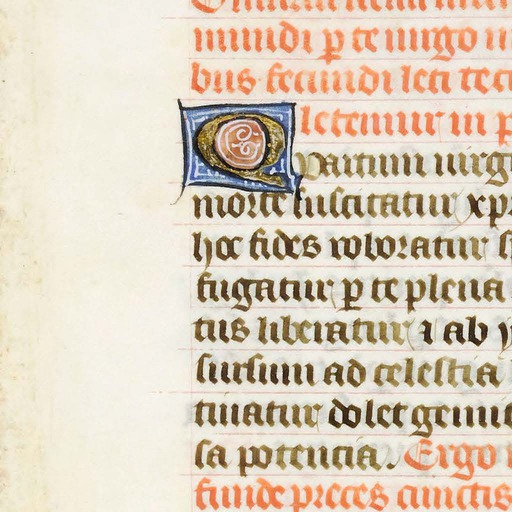 mundi p te uirgo
bus fecundi leti
letemur in
Q partum uirg
morte suscitatur xp
hec fides roboratur
fugatur p te plena
tus liberatur ⁊ ab
sursum ad celestia
tuatur dolet
sa potencia. Ergo
funde preces cunctis